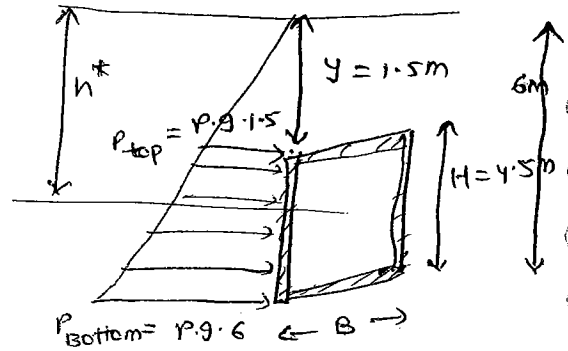 h*
y = 1.5m
6m
P_top = ρ.g.1.5
H = 4.5m
P_Bottom = ρ.g.6
← B →